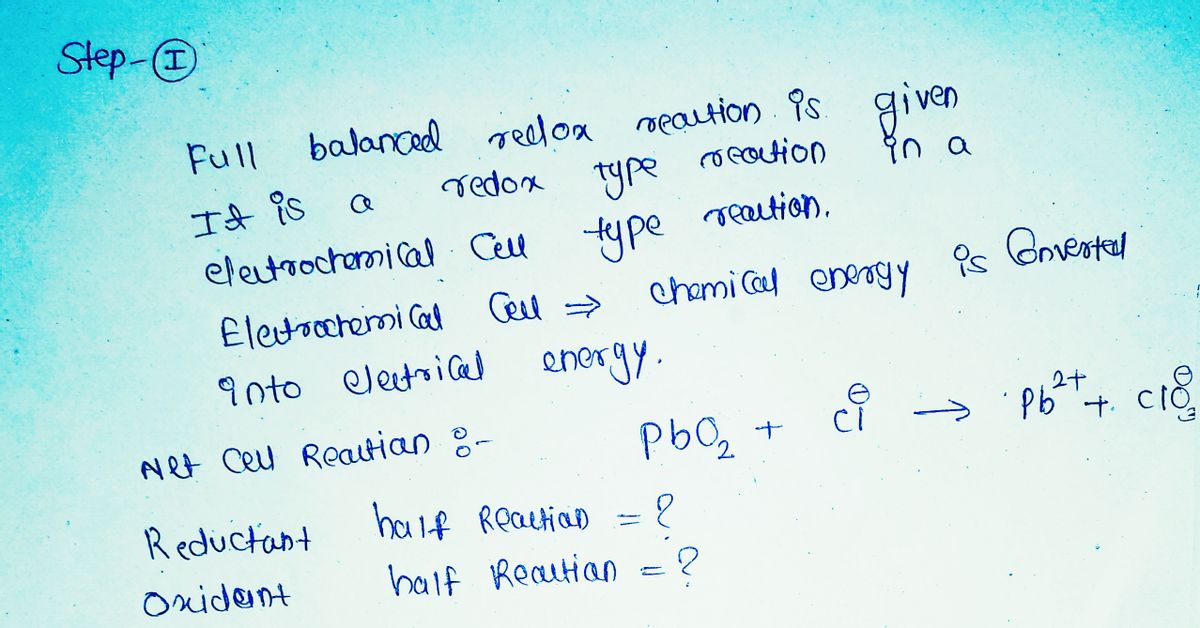 Step-Ⓘ
Full balanced redox reaction is given
It is a redox type reaction in a
electrochemical cell type reaction.
Electrochemical Cell ⇒ chemical energy is Converted
into electrical energy.
Net Cell Reaction :- PbO₂ + Cl⊖ → Pb²⁺ + ClO₃⊖
Reductant half Reaction = ?
Oxidant half Reaction = ?